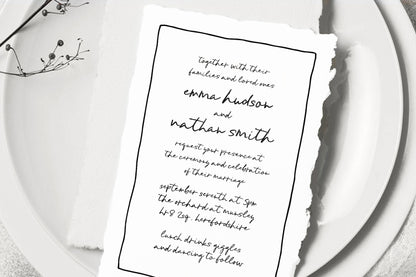 together with their
families and loved ones
emma hudson
and
nathan smith
request your presence at
the ceremony and celebration
of their marriage
september seventh at 5pm
the orchard at munsley
hr8 2sg. herefordshire
lunch drinks giggles
and dancing to follow